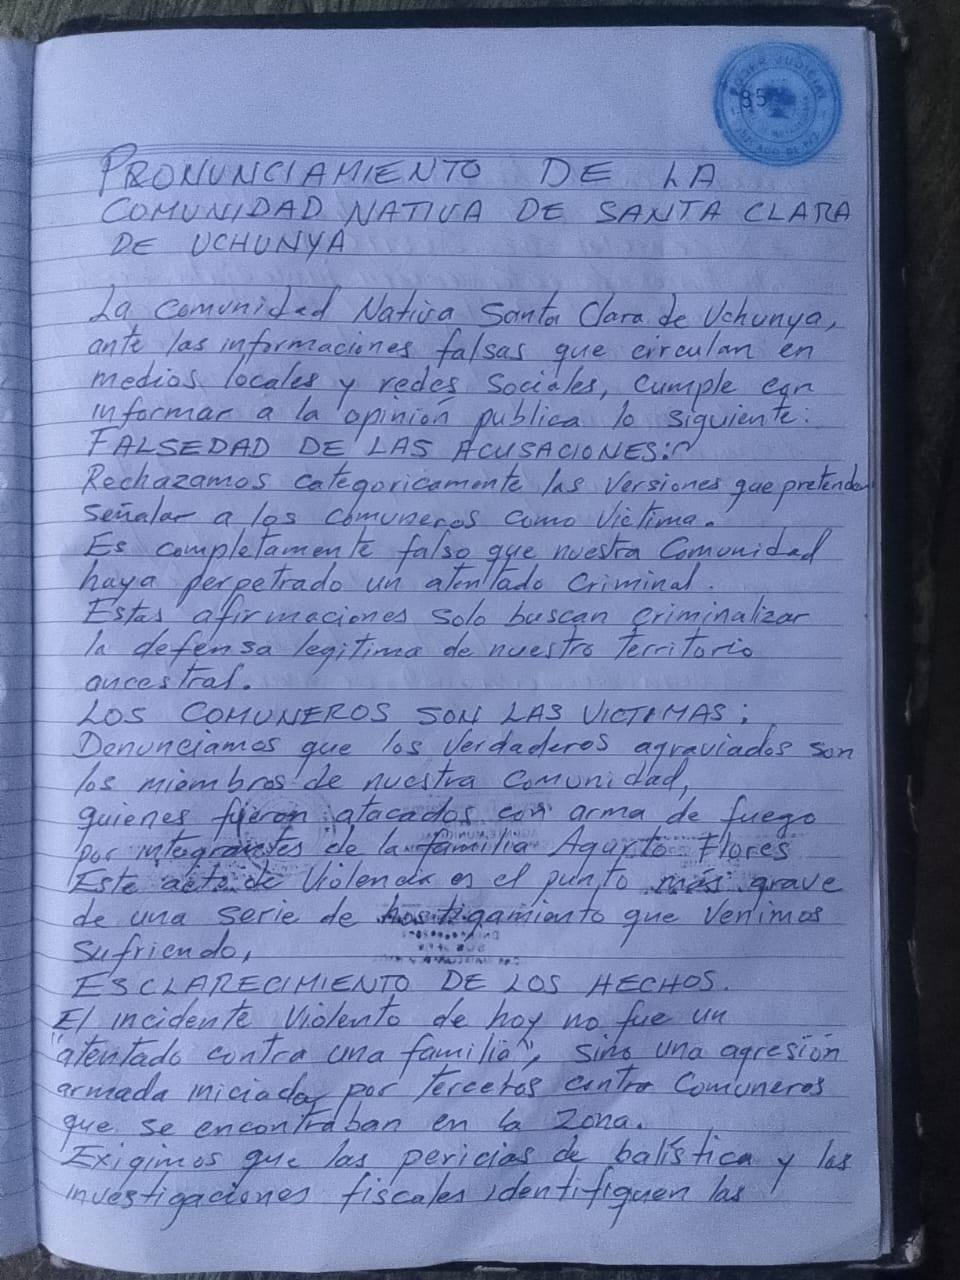 PODER JUDICIAL
85
JUZGADO DE PAZ
PRONUNCIAMIENTO DE LA
COMUNIDAD NATIVA DE SANTA CLARA
DE UCHUNYA
La Comunidad Nativa Santa Clara de Uchunya,
ante las informaciones falsas que circulan en
medios locales y redes sociales, cumple con
informar a la opinión publica lo siguiente:
FALSEDAD DE LAS ACUSACIONES:
Rechazamos categoricamente las versiones que pretenden
señalar a los comuneros como Victima.
Es completamente falso que nuestra Comunidad
haya perpetrado un atentado criminal.
Estas afirmaciones solo buscan criminalizar
la defensa legitima de nuestro Territorio
ancestral.
LOS COMUNEROS SON LAS VICTIMAS:
Denunciamos que los verdaderos agraviados son
los miembros de nuestra comunidad,
quienes fueron atacados con arma de fuego
por integrantes de la familia Agurto Flores
Este acto de Violencia es el punto más grave
de una serie de hostigamiento que venimos
sufriendo,
ESCLARECIMIENTO DE LOS HECHOS.
El incidente Violento de hoy no fue un
"atentado contra una familia", sino una agresión
armada iniciada por Terceros contra Comuneros
que se encontraban en la zona.
Exigimos que las pericias de balística y las
investigaciones fiscales identifiquen las